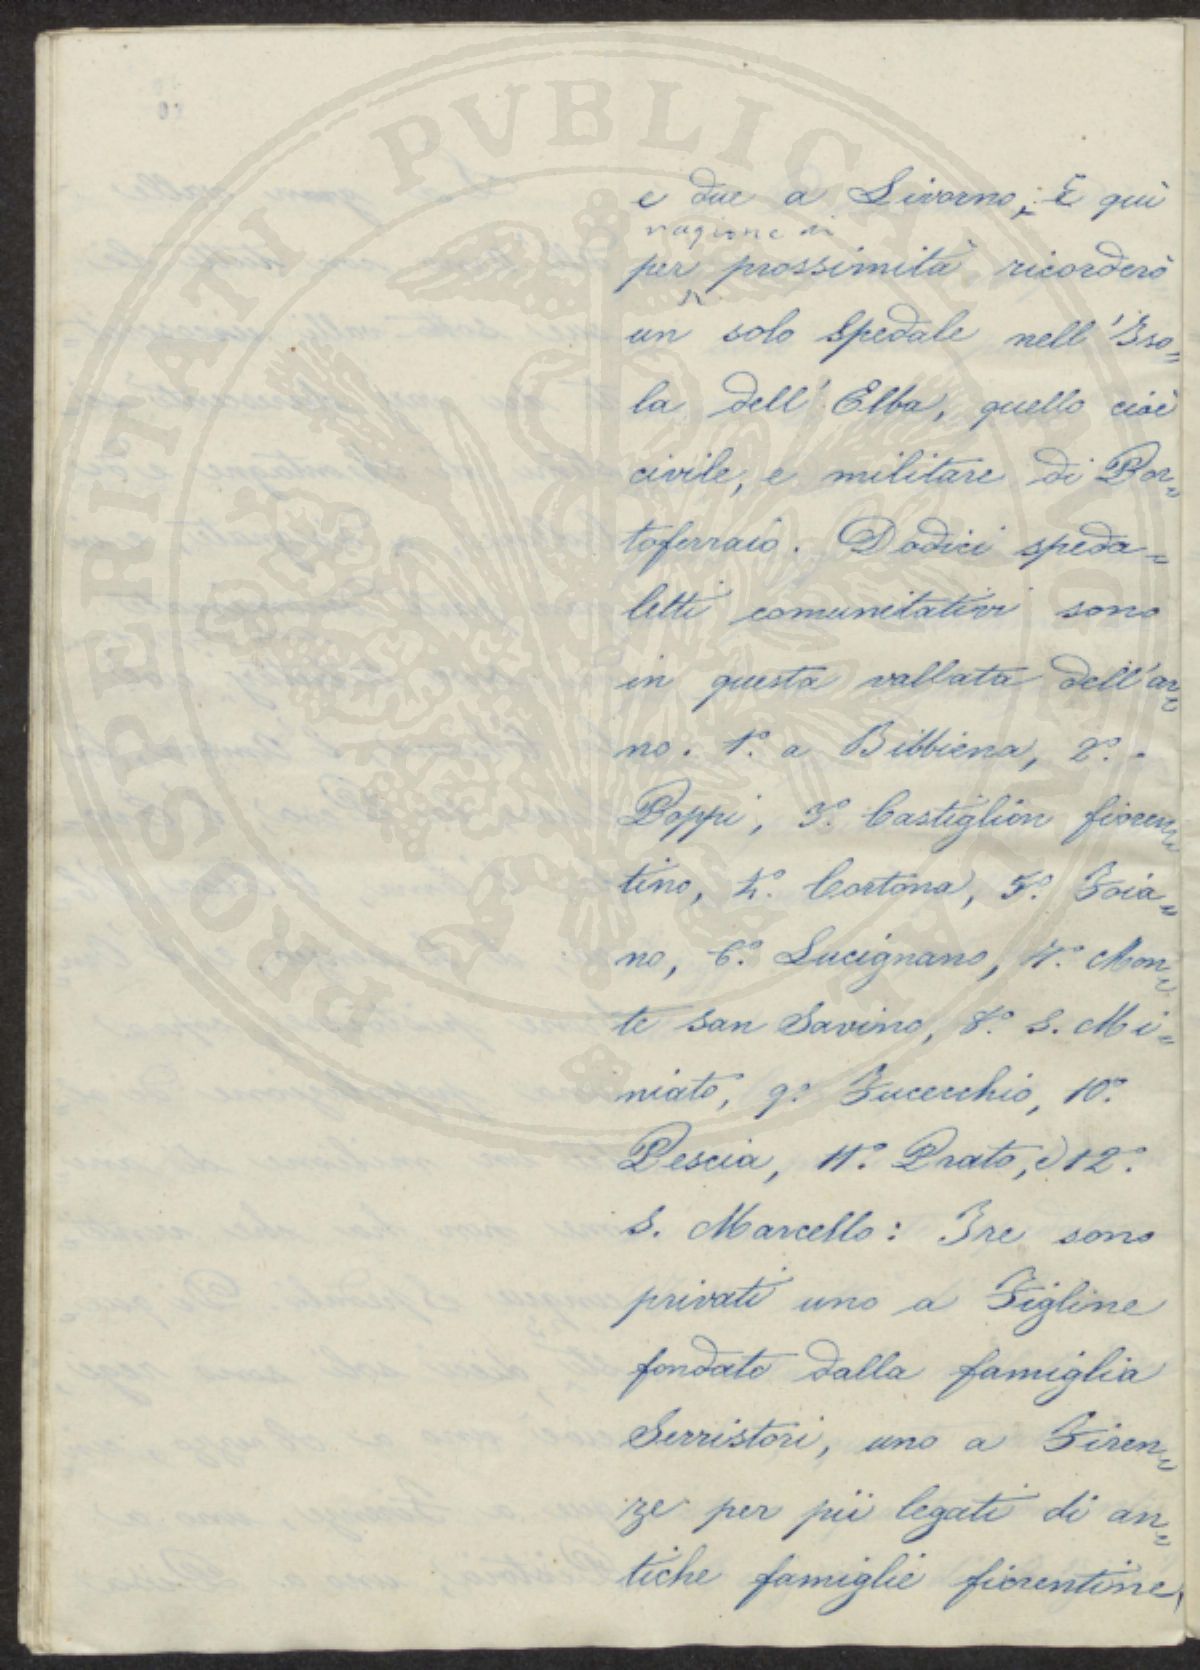 PROSPERITATI PVBLICAE
e due a Livorno; E quì
ragione di
per prossimità ricorderò
un solo Spedale nell'Iso=
la dell'Elba, quello cioè
civile, e militare di Por=
toferraio. Dodici speda=
letti comunitativi sono
in questa vallata dell'ar=
no. 1.° a Bibbiena, 2.° 
Poppi, 3.° Castiglion fioren=
tino, 4.° Cortona, 5.° Foia=
no, 6.° Lucignano, 7.° Mon=
te San Savino, 8.° S. Mi=
niato, 9.° Fucecchio, 10.°
Pescia, 11.° Prato, e 12.°
S. Marcello: Tre sono
privati uno a Figline
fondato dalla famiglia
Serristori, uno a Firen=
ze per più legati di an=
tiche famiglie fiorentine,